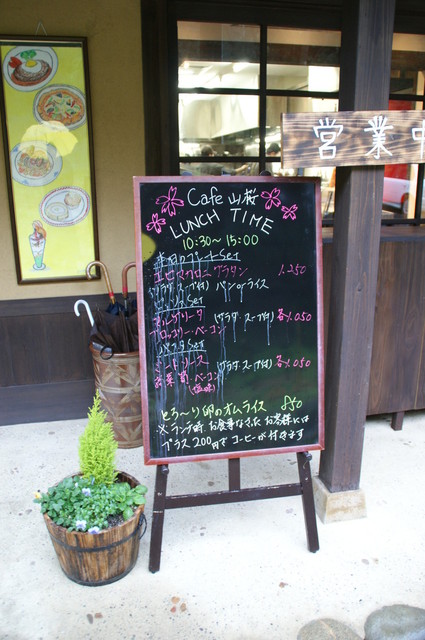 営業中
Cafe 山桜
LUNCH TIME
10:30~15:00
本日のプレートSet
エビマカロニグラタン 1.250
(サラダ・スープ付) パンorライス
ピザSet
マルゲリータ (サラダ・スープ付) 各1.050
ブロッコリー・ベーコン
パスタSet
ミートソース (サラダ・スープ付) 各1.050
ベーコン
とろ~り卵のオムライス 850
※ランチ時、お食事なさったお客様には
プラス200円でコーヒーが付きます